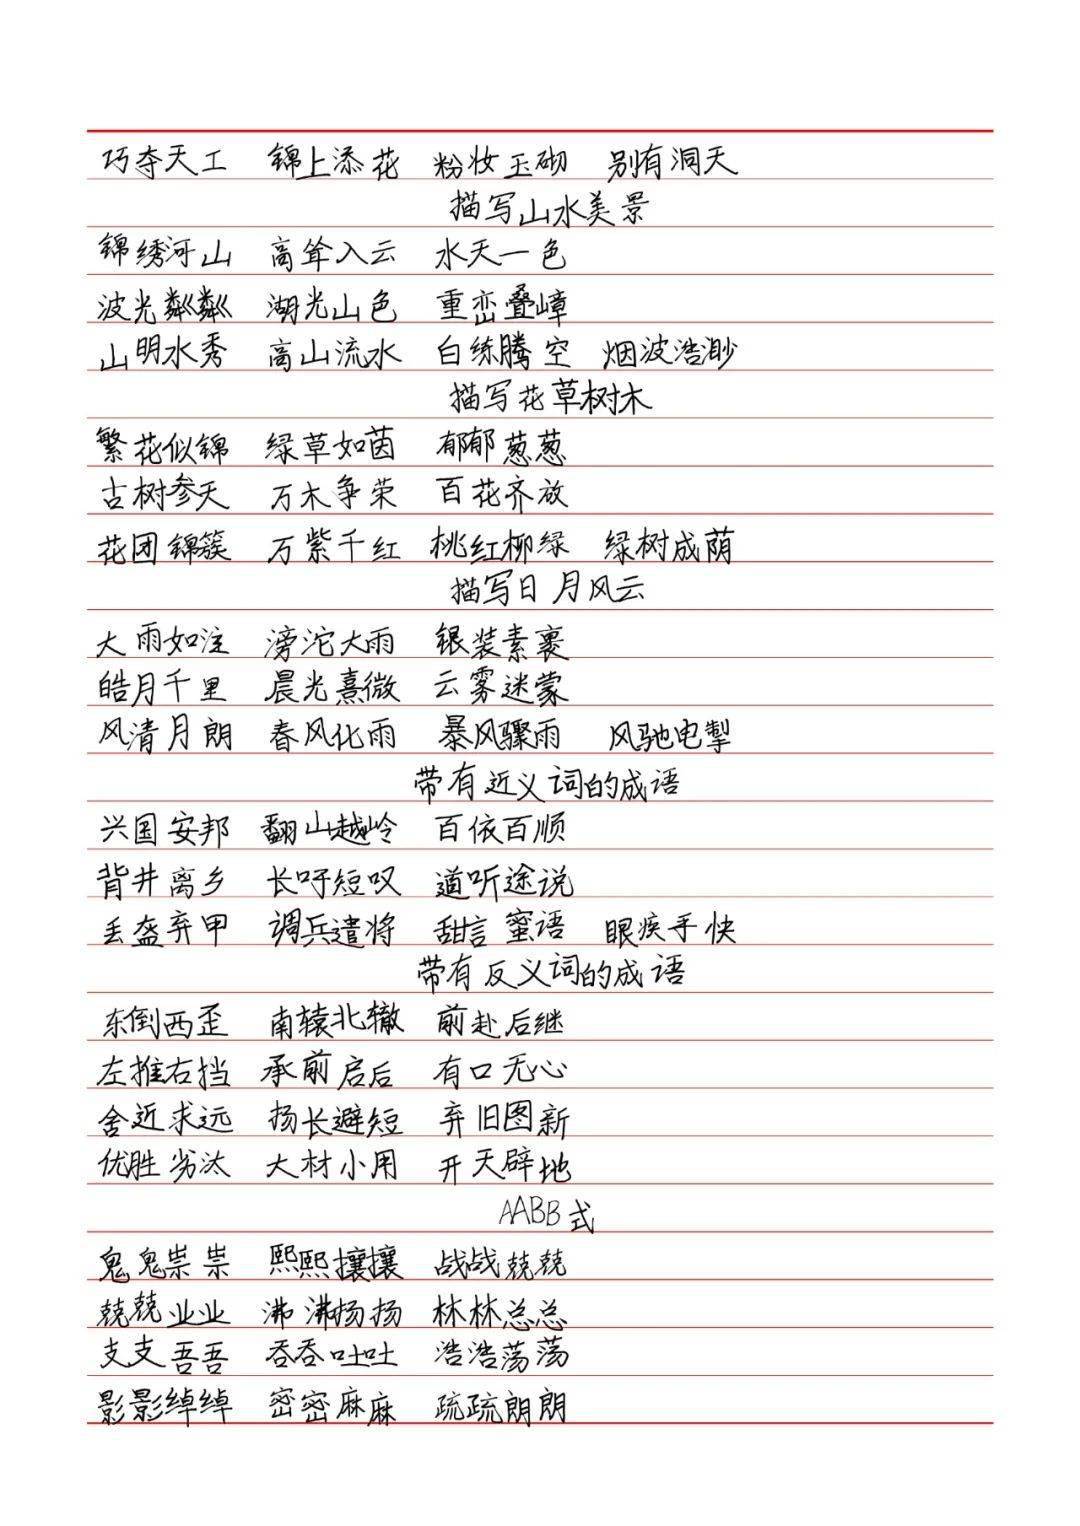 巧夺天工 锦上添花 粉妆玉砌 别有洞天
描写山水美景
锦绣河山 高耸入云 水天一色
波光粼粼 湖光山色 重峦叠嶂
山明水秀 高山流水 白练腾空 烟波浩渺
描写花草树木
繁花似锦 绿草如茵 郁郁葱葱
古树参天 万木争荣 百花齐放
花团锦簇 万紫千红 桃红柳绿 绿树成荫
描写日月风云
大雨如注 滂沱大雨 银装素裹
皓月千里 晨光熹微 云雾迷蒙
风清月朗 春风化雨 暴风骤雨 风驰电掣
带有近义词的成语
兴国安邦 翻山越岭 百依百顺
背井离乡 长吁短叹 道听途说
丢盔弃甲 调兵遣将 甜言蜜语 眼疾手快
带有反义词的成语
东倒西歪 南辕北辙 前赴后继
左推右挡 承前启后 有口无心
舍近求远 扬长避短 弃旧图新
优胜劣汰 大材小用 开天辟地
AABB式
鬼鬼祟祟 熙熙攘攘 战战兢兢
兢兢业业 沸沸扬扬 林林总总
支支吾吾 吞吞吐吐 浩浩荡荡
影影绰绰 密密麻麻 疏疏朗朗